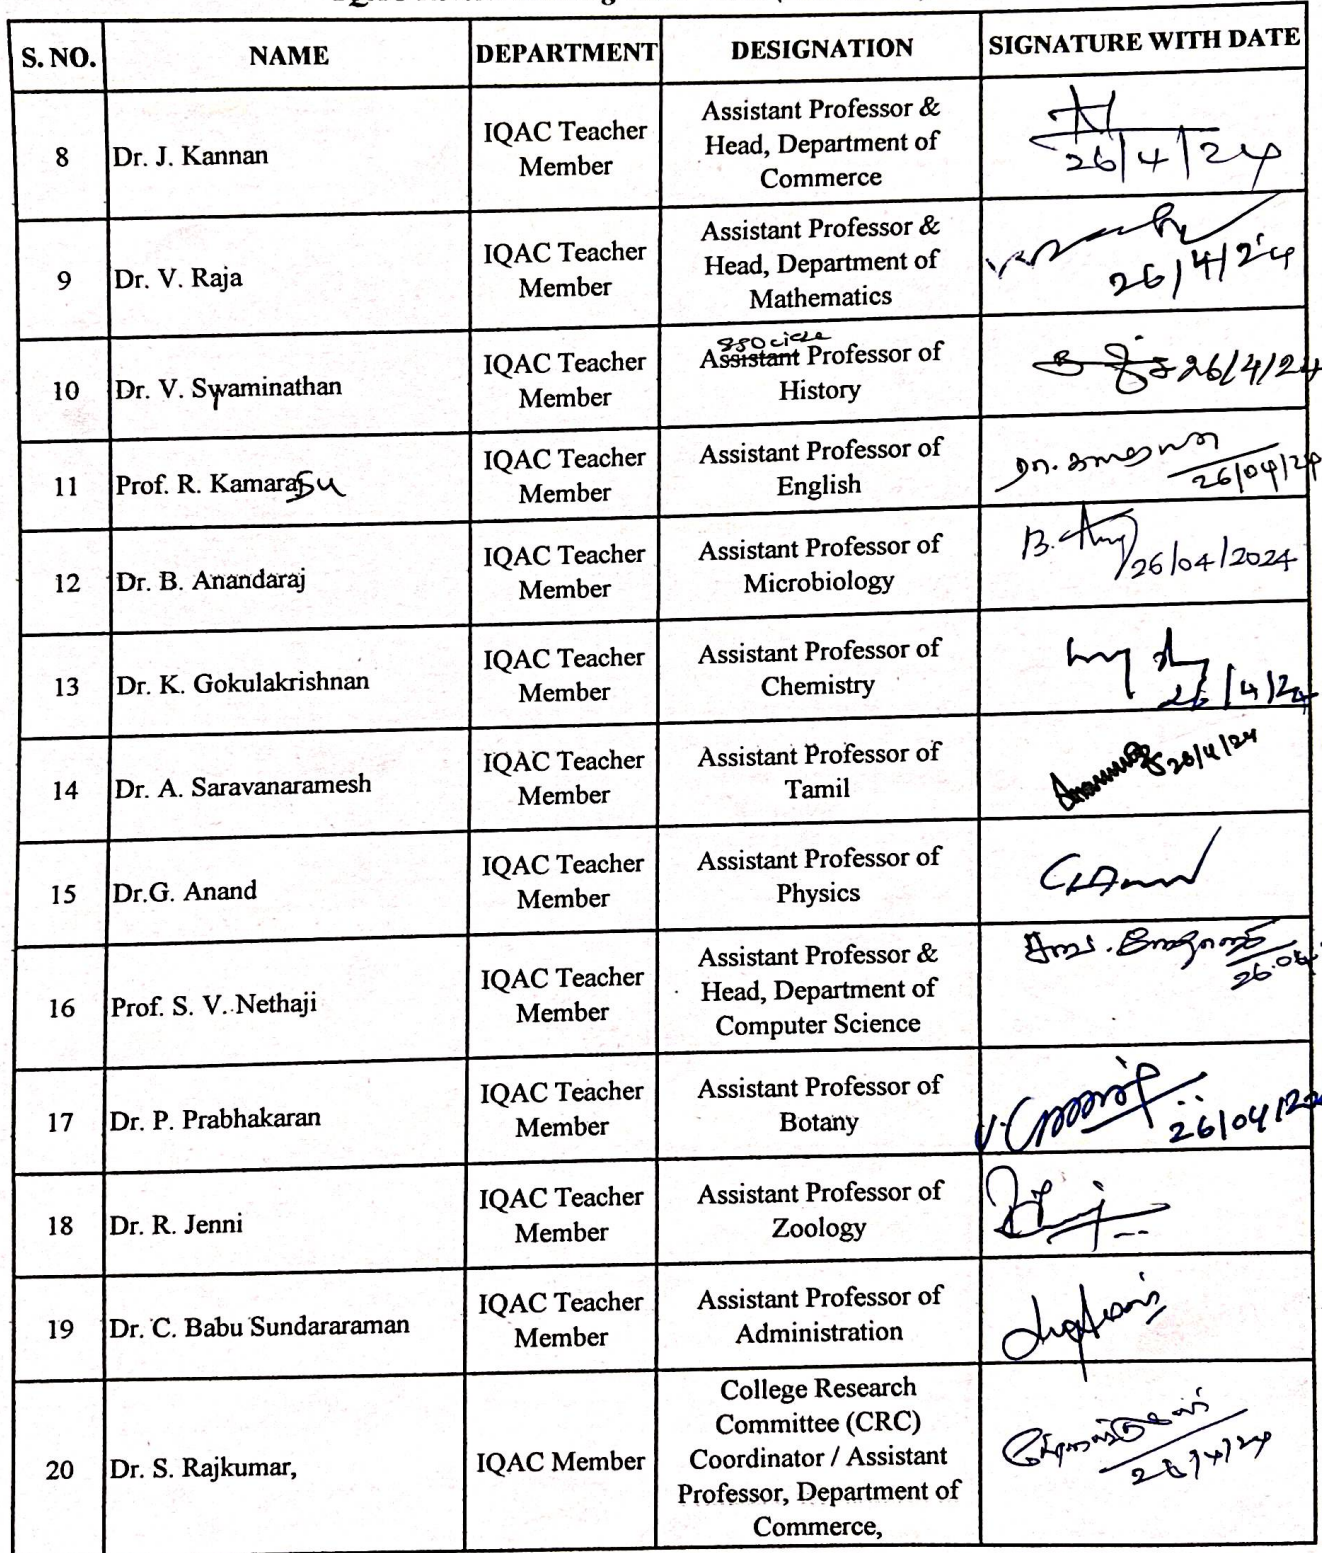 S. NO.
NAME
DEPARTMENT
DESIGNATION
SIGNATURE WITH DATE
8
Dr. J. Kannan
IQAC Teacher
Member
Assistant Professor &
Head, Department of
Commerce
26/4/24
9
Dr. V. Raja
IQAC Teacher
Member
Assistant Professor &
Head, Department of
Mathematics
26/4/24
10
Dr. V. Swaminathan
IQAC Teacher
Member
ssociate
Assistant Professor of
History
26/4/24
11
Prof. R. Kamarasu
IQAC Teacher
Member
Assistant Professor of
English
26/04/24
12
Dr. B. Anandaraj
IQAC Teacher
Member
Assistant Professor of
Microbiology
B.
26/04/2024
13
Dr. K. Gokulakrishnan
IQAC Teacher
Member
Assistant Professor of
Chemistry
26/4/24
14
Dr. A. Saravanaramesh
IQAC Teacher
Member
Assistant Professor of
Tamil
26/4/24
15
Dr.G. Anand
IQAC Teacher
Member
Assistant Professor of
Physics
16
Prof. S. V. Nethaji
IQAC Teacher
Member
Assistant Professor &
Head, Department of
Computer Science
26.04
17
Dr. P. Prabhakaran
IQAC Teacher
Member
Assistant Professor of
Botany
26/04/202
18
Dr. R. Jenni
IQAC Teacher
Member
Assistant Professor of
Zoology
19
Dr. C. Babu Sundararaman
IQAC Teacher
Member
Assistant Professor of
Administration
20
Dr. S. Rajkumar,
IQAC Member
College Research
Committee (CRC)
Coordinator / Assistant
Professor, Department of
Commerce,
26/4/24